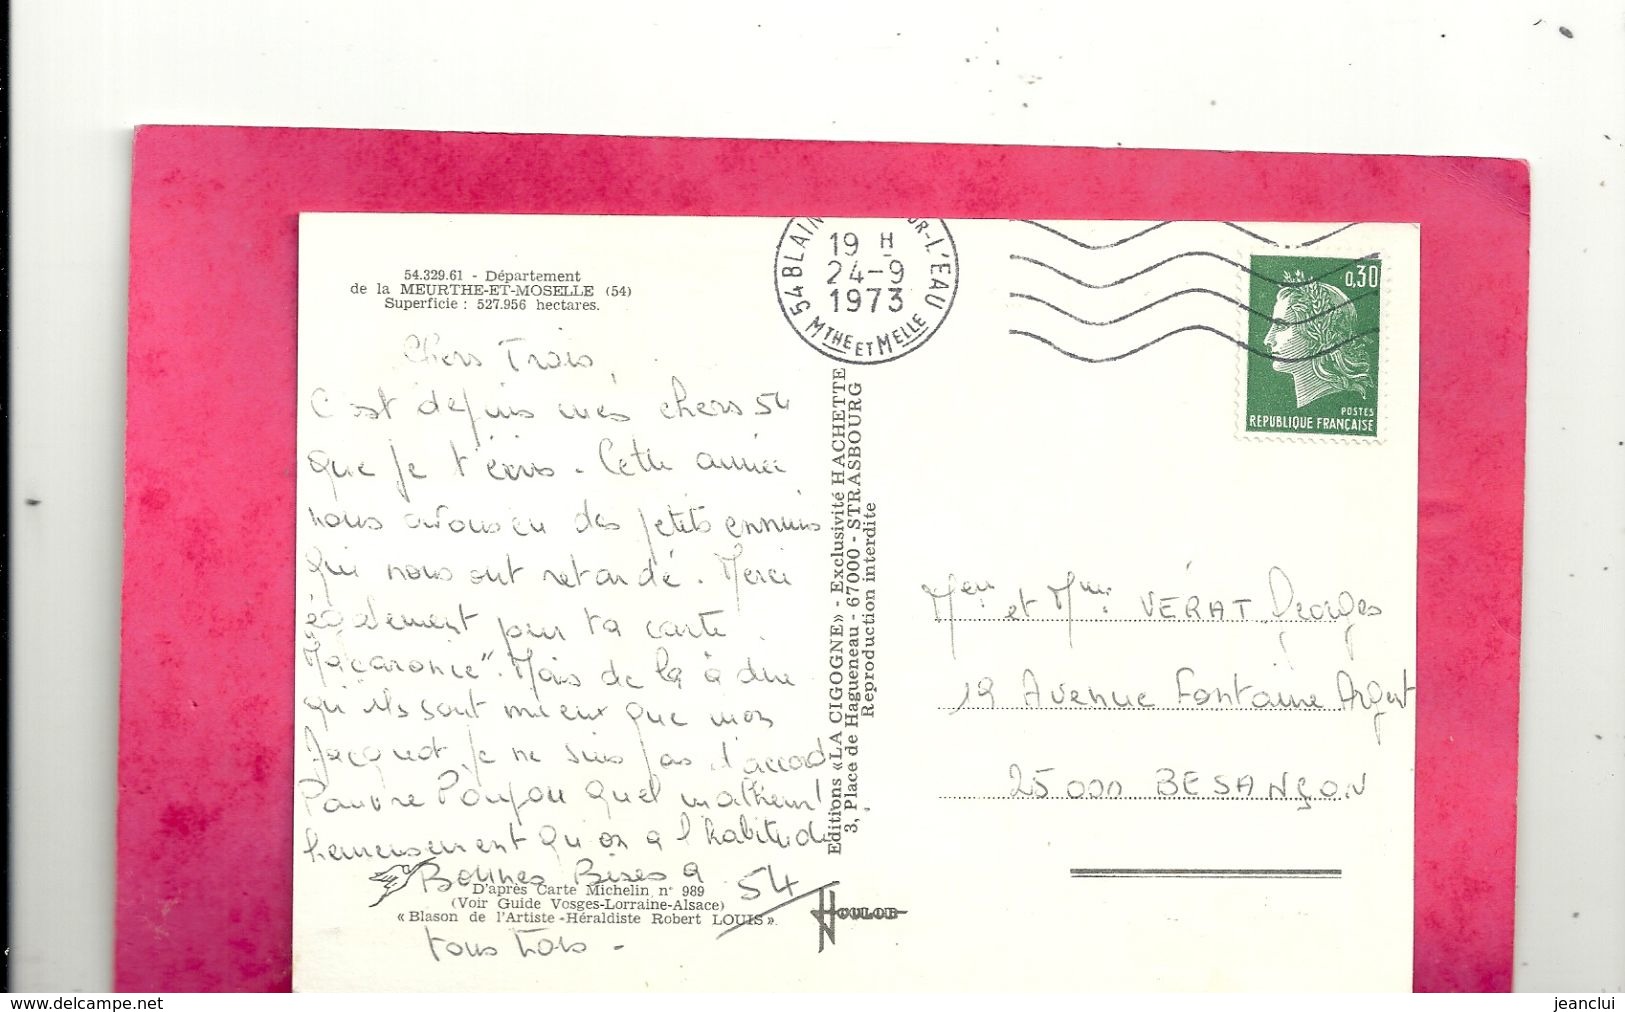 54.329.61 - Département
de la MEURTHE-ET-MOSELLE (54)
Superficie : 527.956 hectares.
Chers Trois,
C'est depuis mes chers 54
que je t'écris. Cette année
nous avons eu des petits ennuis
qui nous ont retardé. Merci
également pour ta carte
Macaronie". Mais de là à dire
qu'ils sont mieux que mon
Jacquot, je ne suis pas d'accord
Pauvre Poupou quel malheur!
heureusement qu'on a l'habitude
Bonnes Bises à
54
D'après Carte Michelin n° 989
(Voir Guide Vosges-Lorraine-Alsace)
« Blason de l'Artiste-Héraldiste Robert LOUIS ».
tous trois -
Editions «LA CIGOGNE» - Exclusivité HACHETTE
3, Place de Hagueneau - 67000 - STRASBOURG
Reproduction interdite
COLOR
54 BLAIN OR-L'EAU
19 H
24-9
1973
MTHE ET MELLE
0,30
POSTES
REPUBLIQUE FRANÇAISE
Meur et Mme VÉRAT Georges
19 Avenue Fontaine Argent
25000 BESANÇON
www.delcampe.net
jeanclui